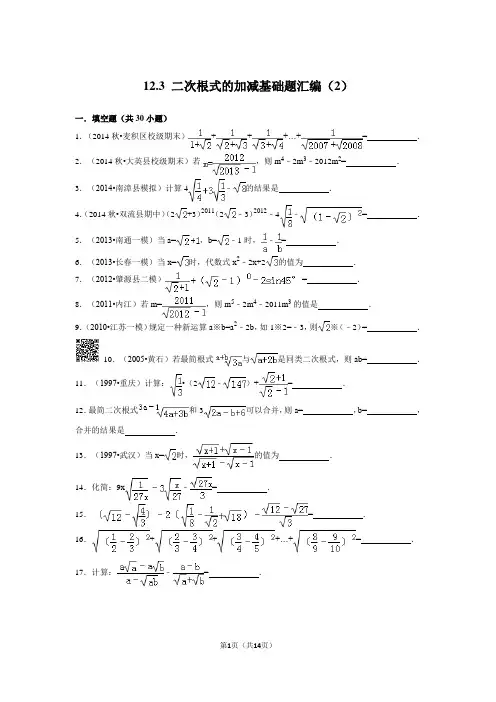 12.3 二次根式的加减基础题汇编（2）
一．填空题（共30小题）
1．（2014秋•麦积区校级期末）1/(1+√2)+1/(√2+√3)+1/(√3+√4)+…+1/(√2007+√2008)= ．
2．（2014秋•大英县校级期末）若m=2012/(√2013﹣1)，则m⁴﹣2m³﹣2012m²= ．
3．（2014•南漳县模拟）计算4√(1/4)+3√(1/3)﹣√8的结果是 ．
4.（2014秋•双流县期中）（2√2+3）²⁰¹¹（2√2﹣3）²⁰¹²﹣4√(1/8)﹣√(1﹣√2)²= ．
5．（2013•南通一模）当a=√2+1，b=√2﹣1时，1/a﹣1/b= ．
6．（2013•长春一模）当x=√3时，代数式x²﹣2x+2√3的值为 ．
7．（2012•肇源县二模）1/(√2+1)+(√2﹣1)⁰﹣2sin45°= ．
8．（2011•内江）若m=2011/(√2012﹣1)，则m⁵﹣2m⁴﹣2011m³的值是 ．
9.（2010•江苏一模）规定一种新运算a※b=a²﹣2b，如1※2=﹣3，则√2※（﹣2）= ．
10．（2005•黄石）若最简根式 ᵃ⁺ᵇ√3a与√a+2b是同类二次根式，则ab= ．
11．（1997•重庆）计算：√(1/3)•（2√12﹣√147）+(√2+1)/(√2﹣1)= ．
12．最简二次根式 ³ᵃ⁻¹√4a+3b和3√2a﹣b+6可以合并，则a= ，b= ，
合并的结果是 ．
13．（1997•武汉）当x=√2时，(√x+1+√x﹣1)/(√x+1﹣√x﹣1)的值为 ．
14．化简：9x√(1/27x)﹣3√(x/27)﹣√27x/3= ．
15．(√12﹣√(4/3))﹣2(√(1/8)﹣1/√2+√18)﹣(√12﹣√27)/√3= ．
16．√(1/2﹣2/3)²+√(2/3﹣3/4)²+√(3/4﹣4/5)²+…+√(8/9﹣9/10)²= ．
17．计算：(a√a﹣a√b)/(a﹣√ab)﹣(a﹣b)/(√a+√b)= ．
第1页（共14页）